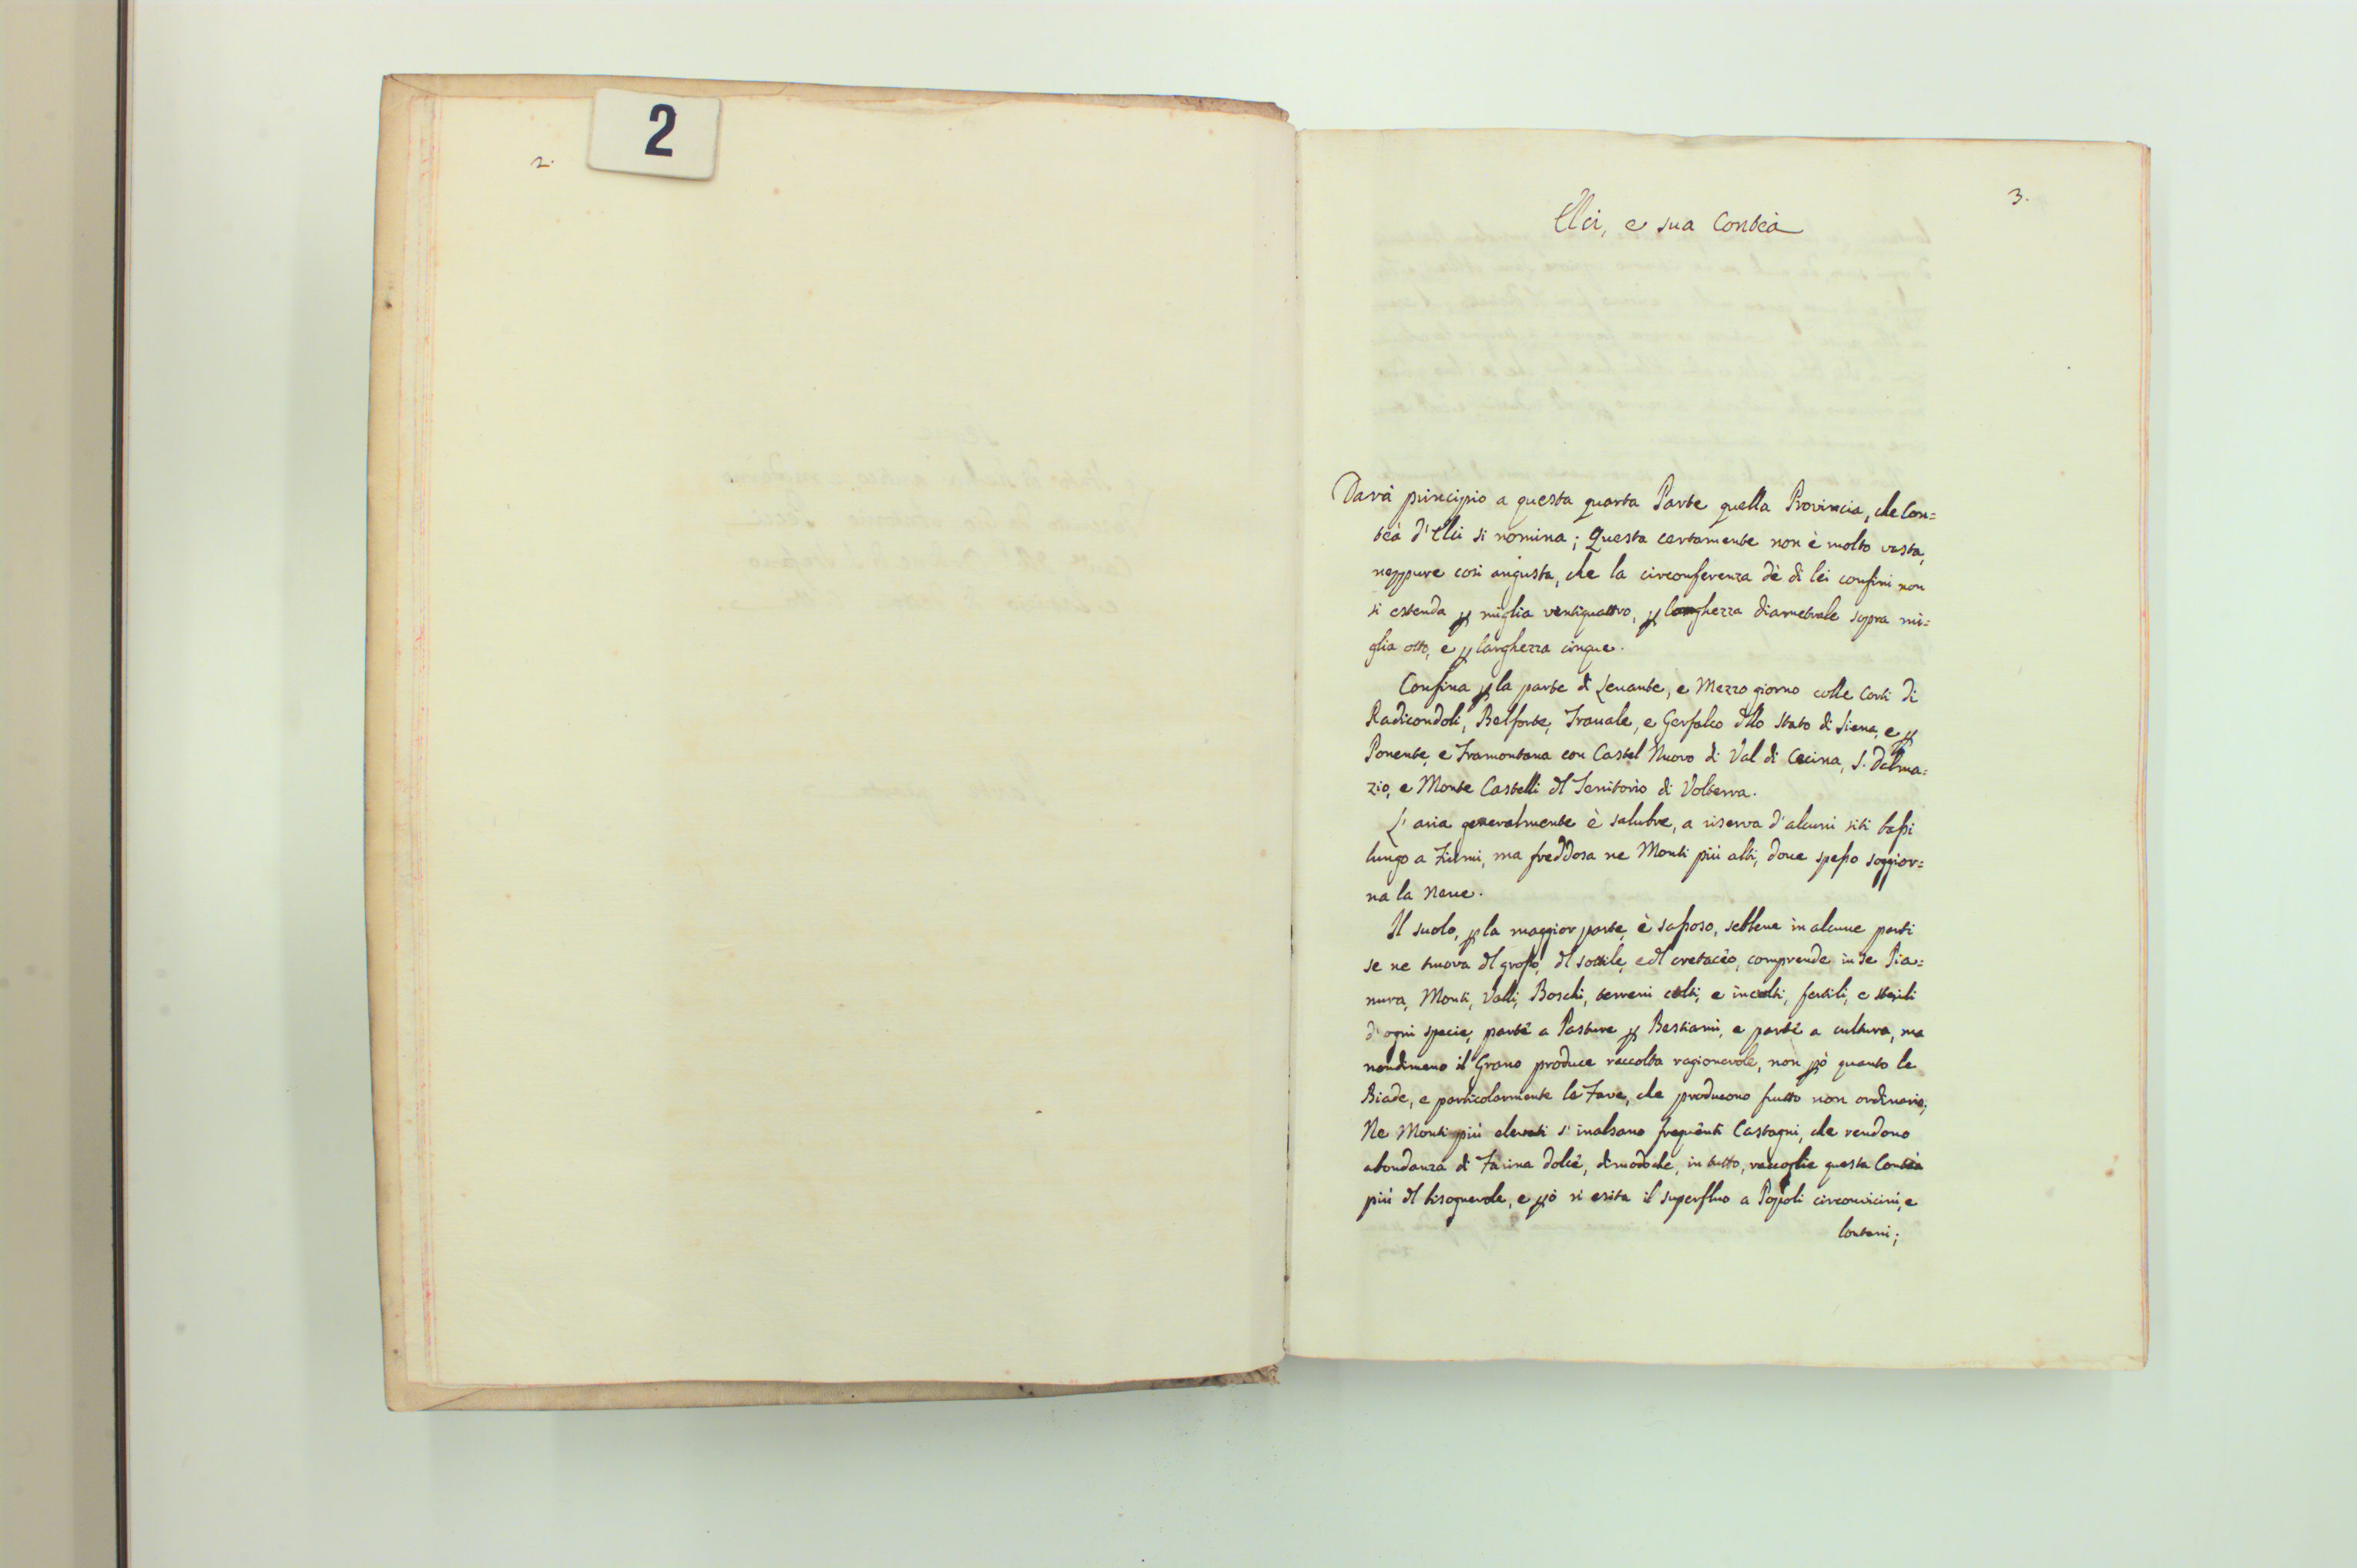 2
2.
3.
Elci, e sua Contea
Darà principio a questa quarta Parte quella Provincia, che Con=
tea d'Elci si nomina; Questa certamente non è molto vasta,
neppure così angusta, che la circonferenza dè di lei confini non
si estenda ꝑ miglia ventiquattro, ꝑ longhezza diametrale sopra mi=
glia otto, e ꝑ larghezza cinque.
Confina ꝑ la parte di Levante, e Mezzo giorno colle Corti di
Radicondoli, Belforte, Travale, e Gerfalco dllo Stato di Siena, e ꝑ
Ponente, e Tramontana con Castel Nuovo di Val di Cecina, S. Dalma=
zio, e Monte Castelli dl Territorio di Volterra.
L'aria generalmente è salubre, a riserva d'alcuni siti bassi
lungo a Fiumi, ma freddosa ne Monti più alti, dove spesso soggior=
na la Neve.
Il suolo, ꝑ la maggior parte, è sassoso, sebbene in alcune parti
se ne truova dl grosso, dl sottile, e dl cretaceo, comprende in se Pia=
nura, Monti, Valli, Boschi, terreni colti, e incolti, fertili, e sterili
d'ogni specie, parte a Pasture ꝑ Bestiami, e parte a cultura, ma
nondimeno il Grano produce raccolta ragionevole, non ꝑò quanto le
Biade, e particolarmente le Fave, che producono frutto non ordinario;
Ne Monti più elevati s'inalsano frequenti Castagni, che rendono
abondanza di Farina dolce, dimodoche, in tutto, raccoglie questa Contea
più dl bisognevole, e ꝑò si esita il superfluo a Popoli circonvicini, e
lontani;